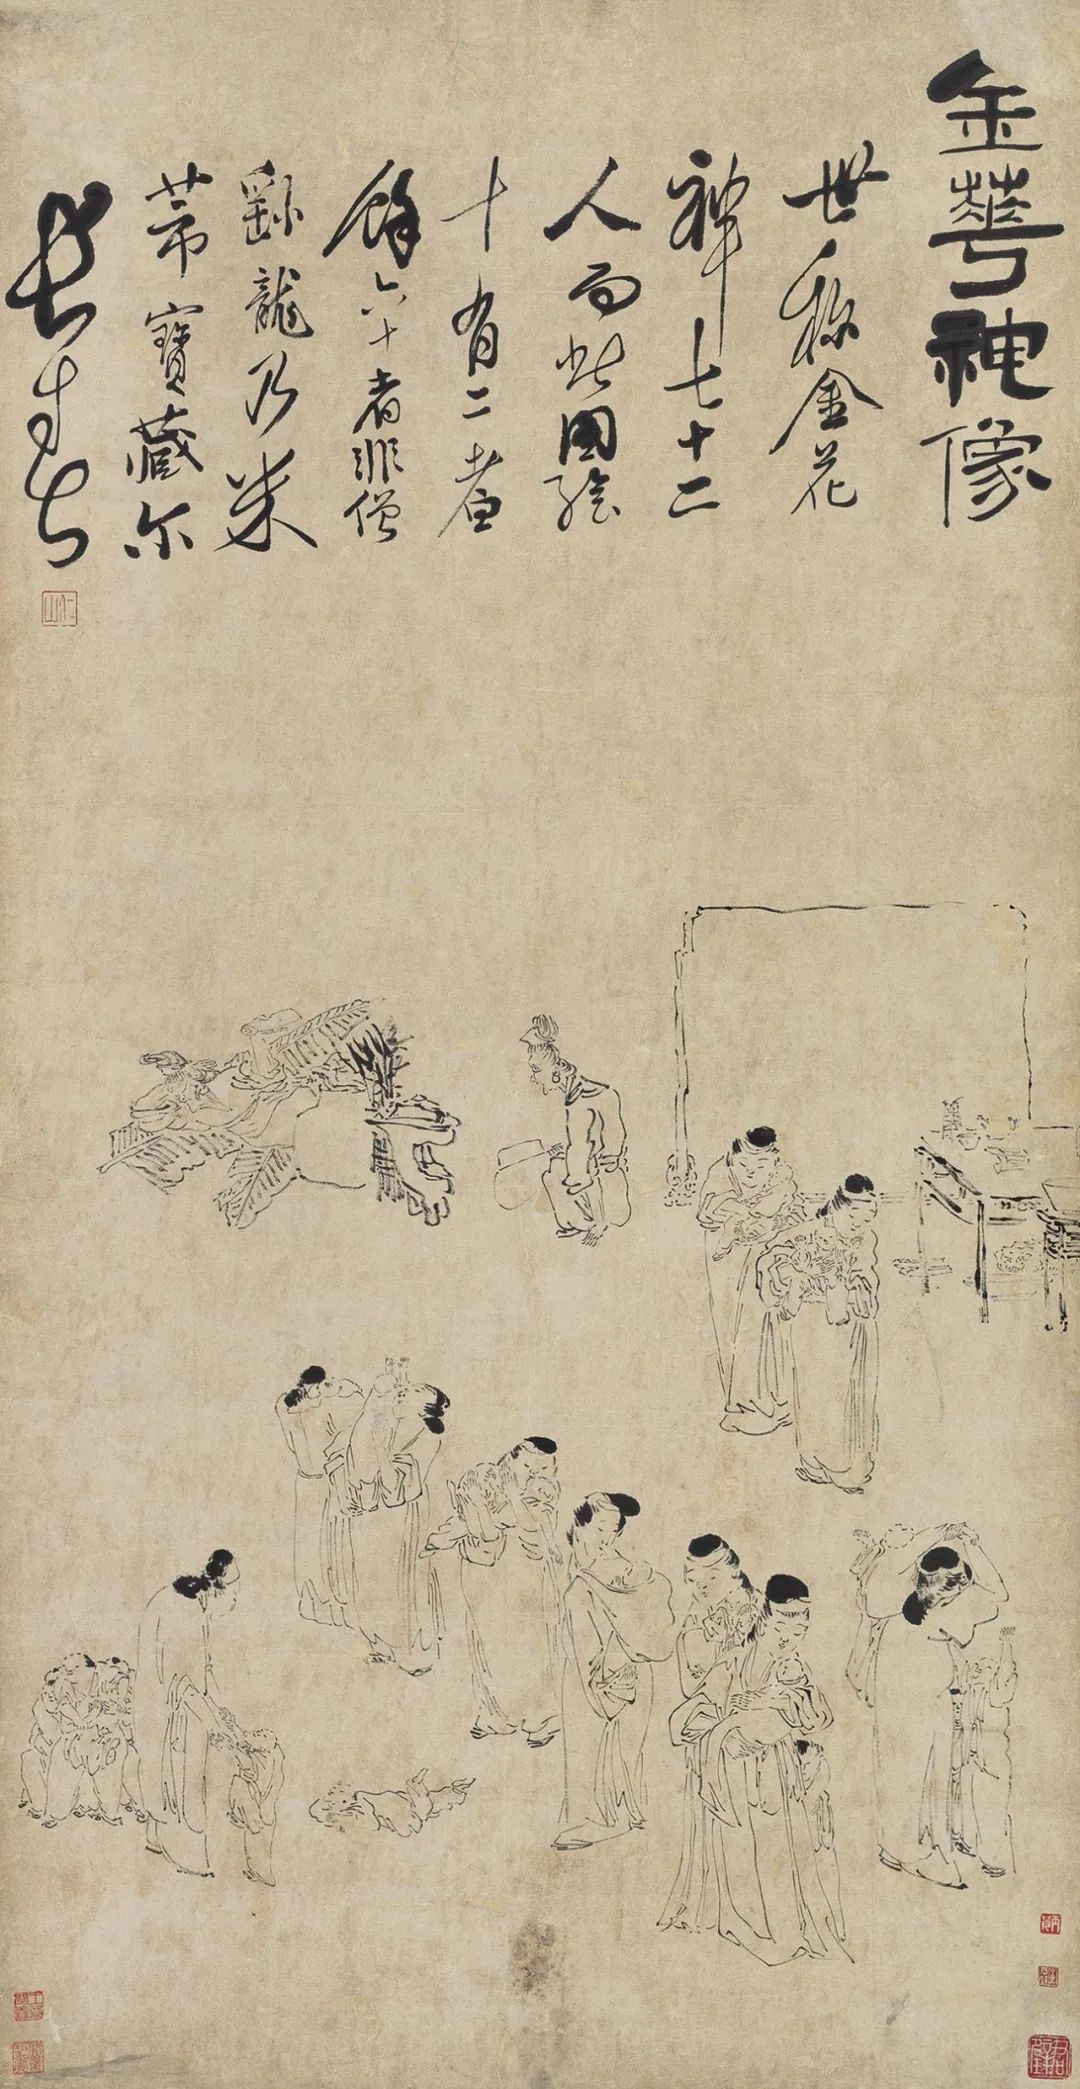 金華神像
世称金花
神七十二
人而此圖繪
十有二者
餘六十者非僧
繇龍乃米
芾寶藏尔
仁山